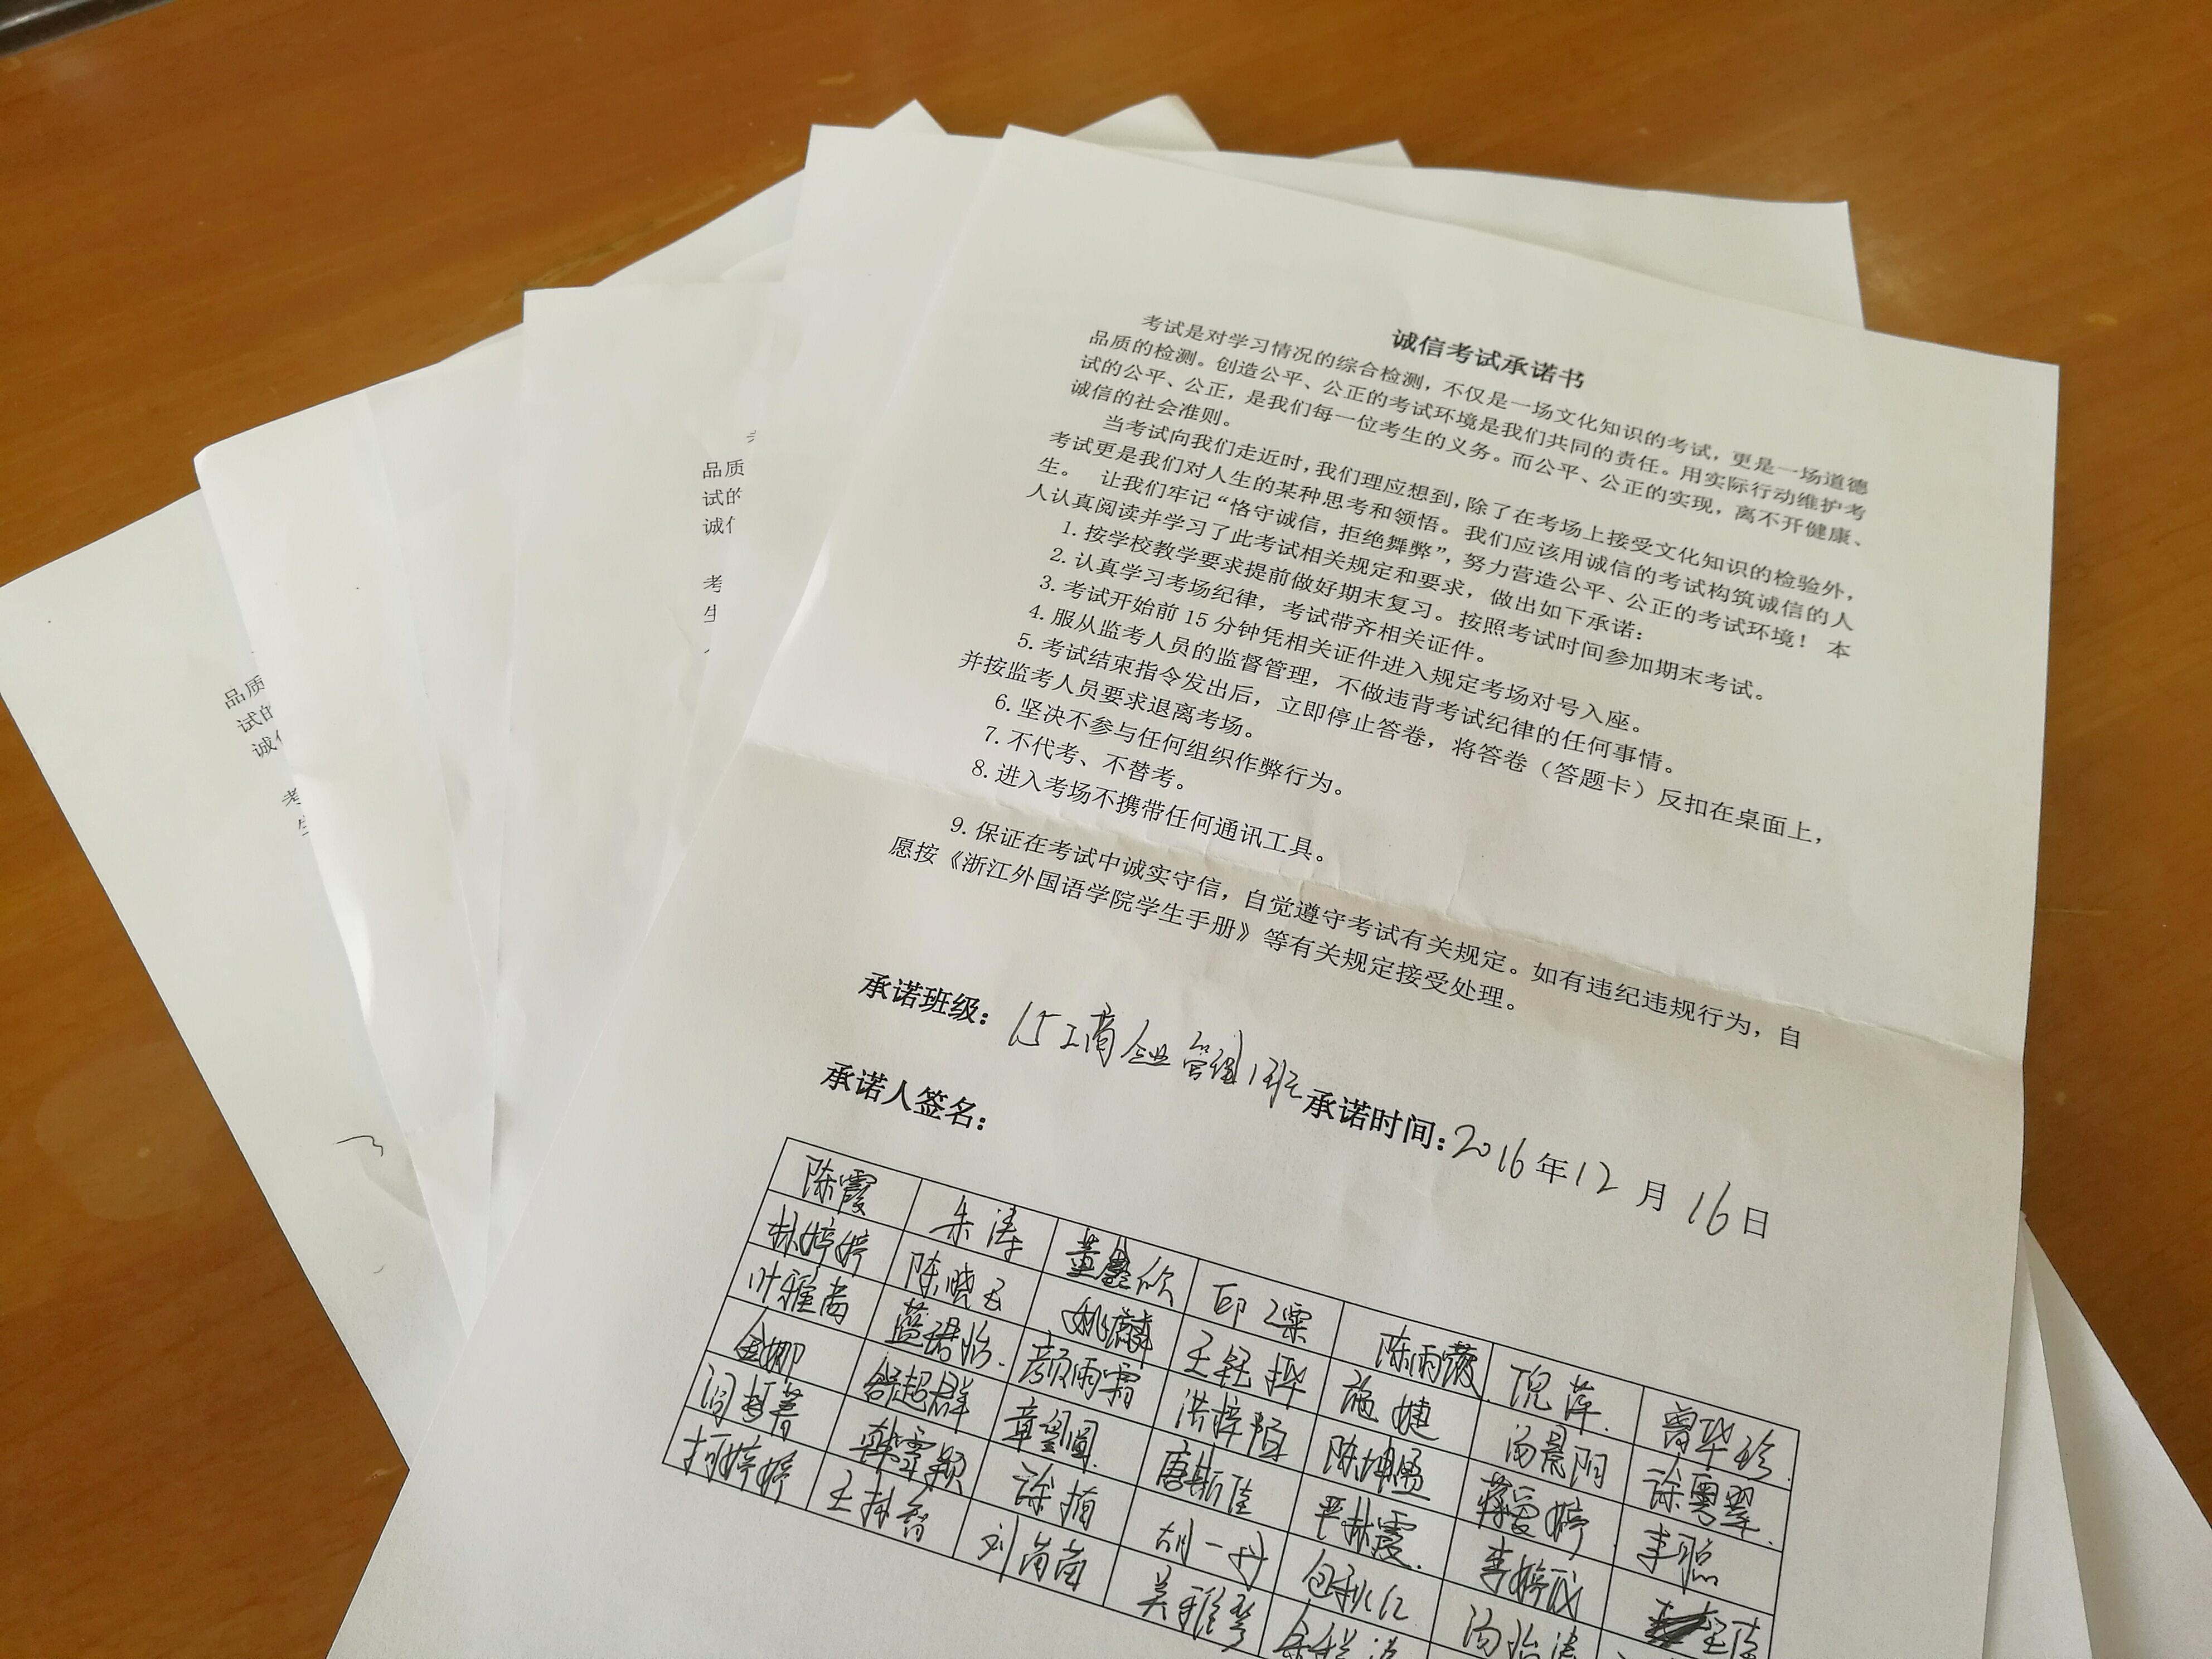 诚信考试承诺书
考试是对学习情况的综合检测，不仅是一场文化知识的考试，更是一场道德
品质的检测。创造公平、公正的考试环境是我们共同的责任。用实际行动维护考
试的公平、公正，是我们每一位考生的义务。而公平、公正的实现，离不开健康、
诚信的社会准则。
当考试向我们走近时，我们理应想到，除了在考场上接受文化知识的检验外，
考试更是我们对人生的某种思考和领悟。我们应该用诚信的考试构筑诚信的人
生。 让我们牢记“恪守诚信，拒绝舞弊”，努力营造公平、公正的考试环境！本
人认真阅读并学习了此考试相关规定和要求，做出如下承诺：
1. 按学校教学要求提前做好期末复习。按照考试时间参加期末考试。
2. 认真学习考场纪律，考试带齐相关证件。
3. 考试开始前 15 分钟凭相关证件进入规定考场对号入座。
4. 服从监考人员的监督管理，不做违背考试纪律的任何事情。
5. 考试结束指令发出后，立即停止答卷，将答卷（答题卡）反扣在桌面上，
并按监考人员要求退离考场。
6. 坚决不参与任何组织作弊行为。
7. 不代考、不替考。
8. 进入考场不携带任何通讯工具。
9. 保证在考试中诚实守信，自觉遵守考试有关规定。如有违纪违规行为，自
愿按《浙江外国语学院学生手册》等有关规定接受处理。
承诺班级：15工商企业管理1班 承诺时间：2016年12月16日
承诺人签名：
陈霞 朱涛 董鑫欣 陈雨薇 倪萍
林婷婷 陈晓 姚麟 王钰 施婕 汤景阳
叶雅 蓝珺怡 颜雨霜 洪梓 陈 蒋爱婷 李聪
金娜 舒超群 章 唐斯佳 严林霞 李婷
韩雪颖 徐 胡一丹 包秋红 汤怡
柯婷婷 王 刘 吴雅琴
品质
试的
诚信
考
生
品质
试的
诚信
考
生